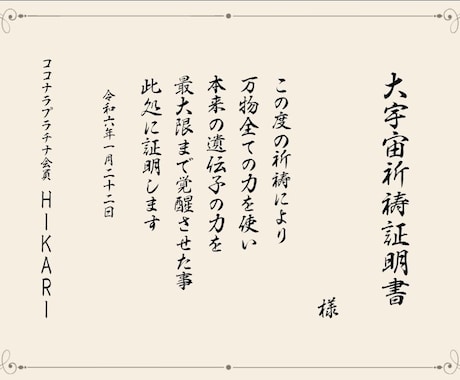 大宇宙祈祷証明書
様
この度の祈祷により
万物全ての力を使い
本来の遺伝子の力を
最大限まで覚醒させた事
此処に証明します
令和六年一月二十二日
ココナラプラチナ会員 HIKARI